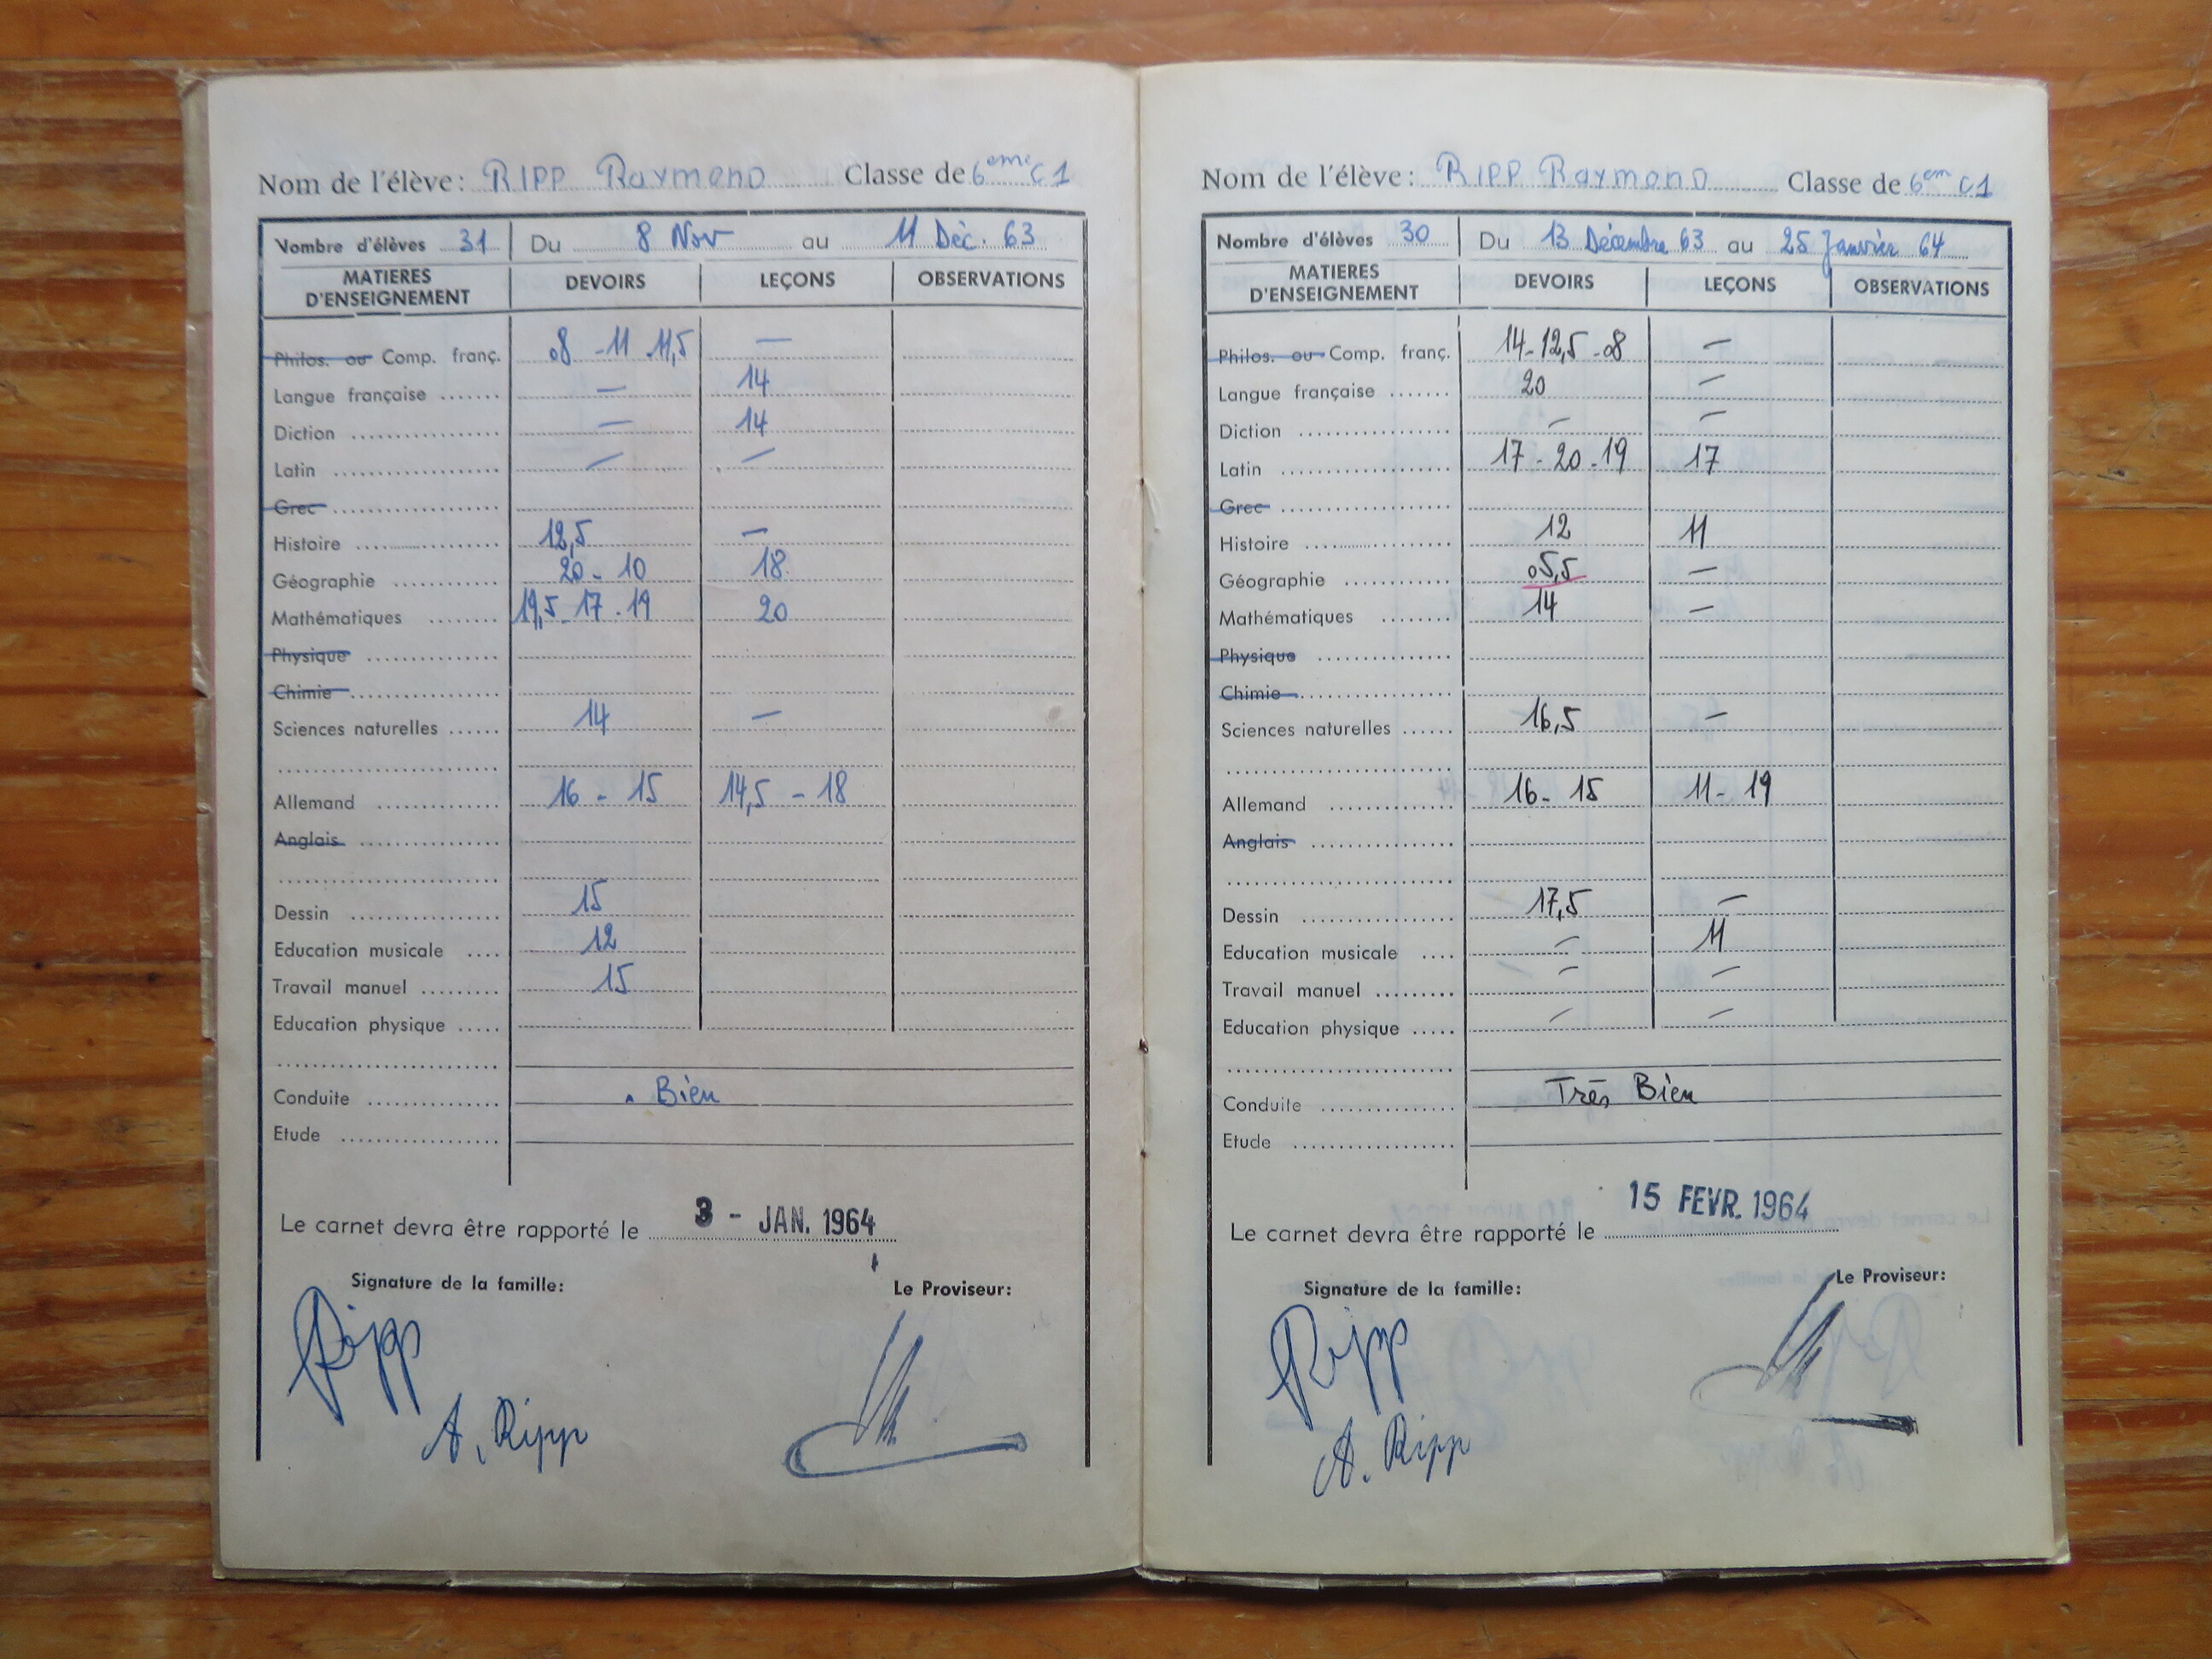 Nom de l'élève : RIPP Raymond Classe de 6eme C1
Nombre d'élèves 31 Du 8 Nov au 11 Déc. 63
MATIERES D'ENSEIGNEMENT DEVOIRS LEÇONS OBSERVATIONS
Philos. ou Comp. franç. 08 - 11 - 11,5 —
Langue française ....... — 14
Diction ................ — 14
Latin .................. — —
Grec ..................
Histoire ............... 12,5 —
Géographie ............ 20 - 10 18
Mathématiques ........ 19,5 - 17 - 19 20
Physique ..............
Chimie ................
Sciences naturelles ...... 14 —
Allemand ............. 16 - 15 14,5 - 18
Anglais ...............
Dessin ................ 15
Education musicale .... 12
Travail manuel ......... 15
Education physique .....
Conduite ............... Bien
Etude ..................
Le carnet devra être rapporté le 3 - JAN. 1964
Signature de la famille: Le Proviseur:
Ripp
A. Ripp
Nom de l'élève : RIPP Raymond Classe de 6em C1
Nombre d'élèves 30 Du 13 Décembre 63 au 25 Janvier 64
MATIERES D'ENSEIGNEMENT DEVOIRS LEÇONS OBSERVATIONS
Philos. ou Comp. franç. 14 - 12,5 - 08 —
Langue française ....... 20 —
Diction ................ — —
Latin .................. 17 - 20 - 19 17
Grec ..................
Histoire ............... 12 11
Géographie ............ 05,5 —
Mathématiques ........ 14 —
Physique ..............
Chimie ................
Sciences naturelles ...... 16,5 —
Allemand ............. 16 - 15 11 - 19
Anglais ...............
Dessin ................ 17,5 —
Education musicale .... — 11
Travail manuel ......... — —
Education physique ..... — —
Conduite ............... Très Bien
Etude ..................
Le carnet devra être rapporté le 15 FEVR. 1964
Signature de la famille: Le Proviseur:
Ripp
A. Ripp